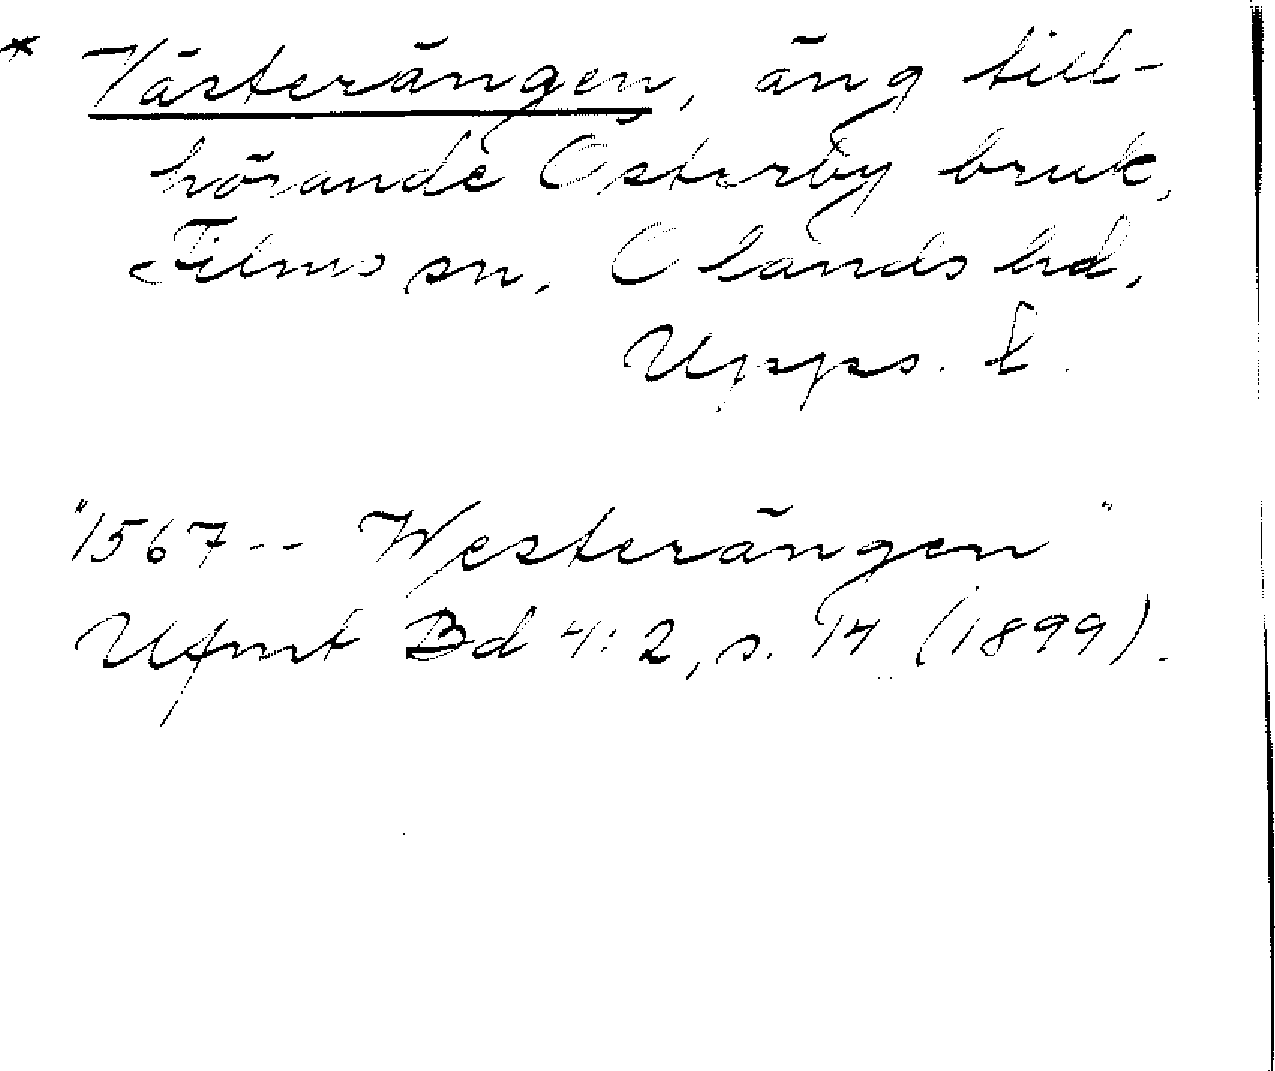 * Västerängen, äng till-
hörande Österby bruk,
Films sn, Olands hd,
Upps. l.
"1567-- Westerängen"
Ufmt Bd 4:2, s. 14 (1899).